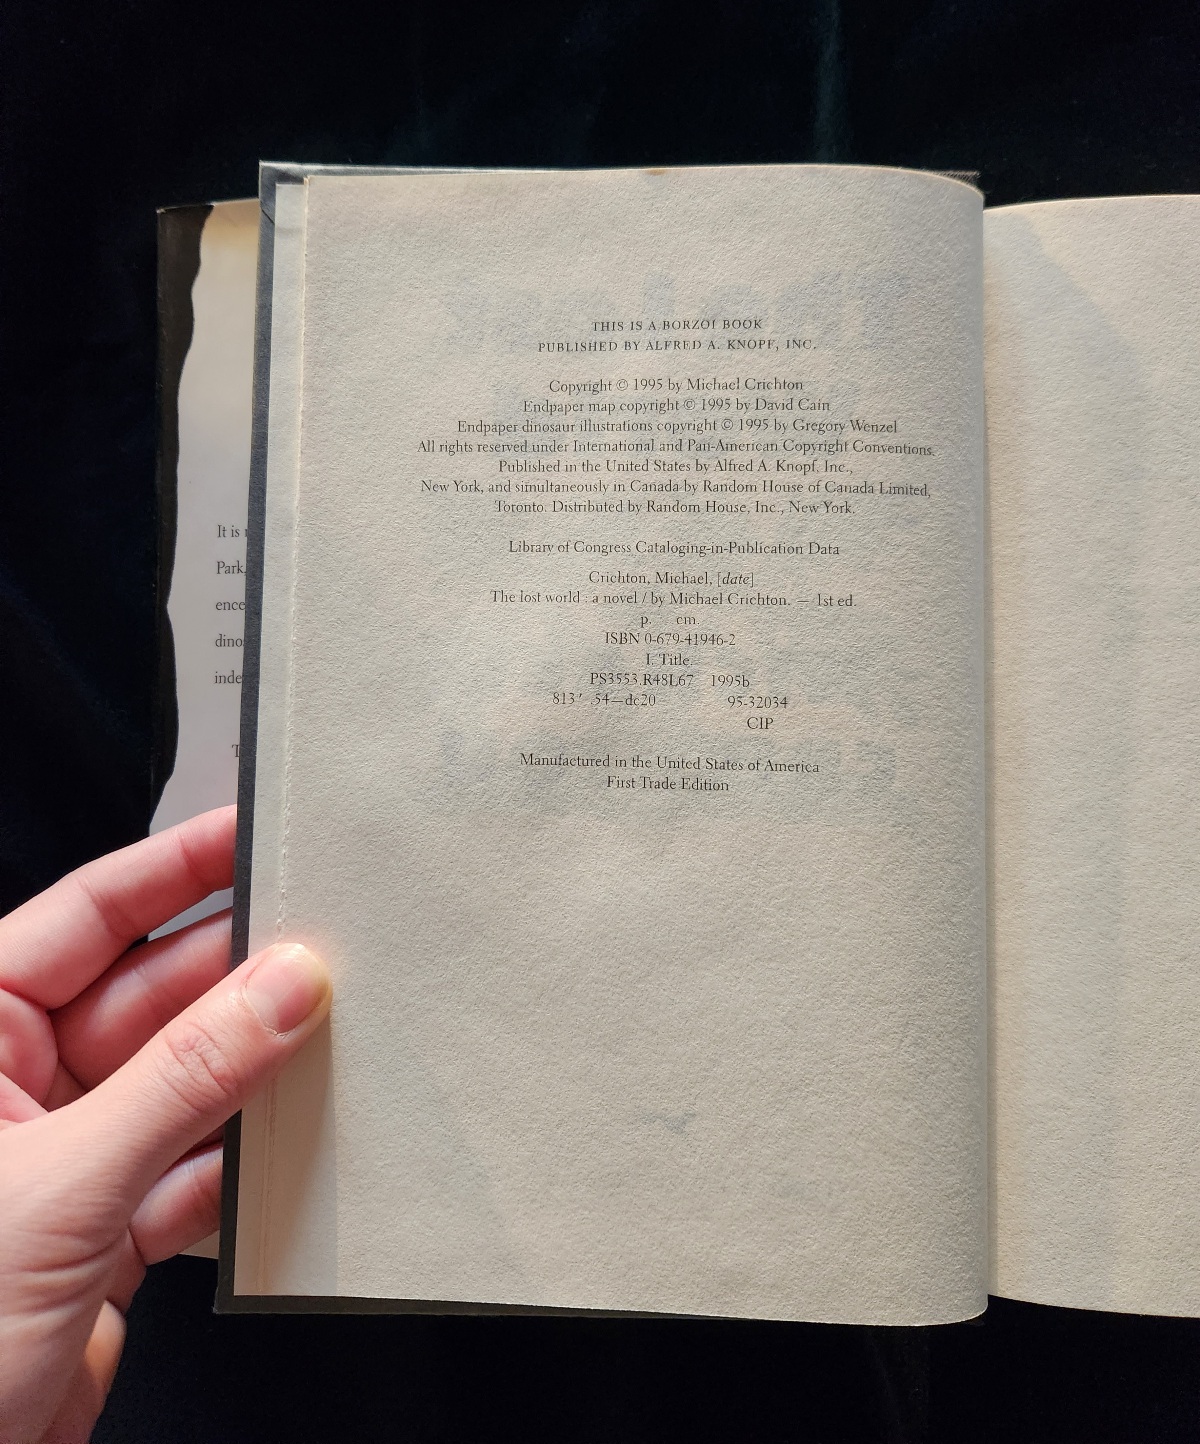 THIS IS A BORZOI BOOK
PUBLISHED BY ALFRED A. KNOPF, INC.
Copyright © 1995 by Michael Crichton
Endpaper map copyright © 1995 by David Cain
Endpaper dinosaur illustrations copyright © 1995 by Gregory Wenzel
All rights reserved under International and Pan-American Copyright Conventions.
Published in the United States by Alfred A. Knopf, Inc.,
New York, and simultaneously in Canada by Random House of Canada Limited,
Toronto. Distributed by Random House, Inc., New York.
Library of Congress Cataloging-in-Publication Data
Crichton, Michael, [date]
The lost world : a novel / by Michael Crichton. — 1st ed.
p. cm.
ISBN 0-679-41946-2
I. Title.
PS3553.R48L67 1995b
813′ .54—dc20 95-32034
CIP
Manufactured in the United States of America
First Trade Edition
It is
Park,